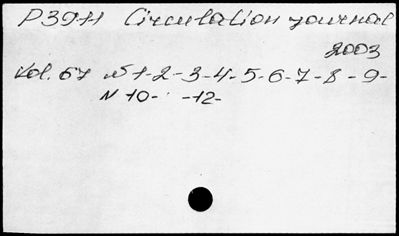 P3911 Circulation journal
2003
Vol. 67 N 1-2-3-4-5-6-7-8-9-
N 10- -12-